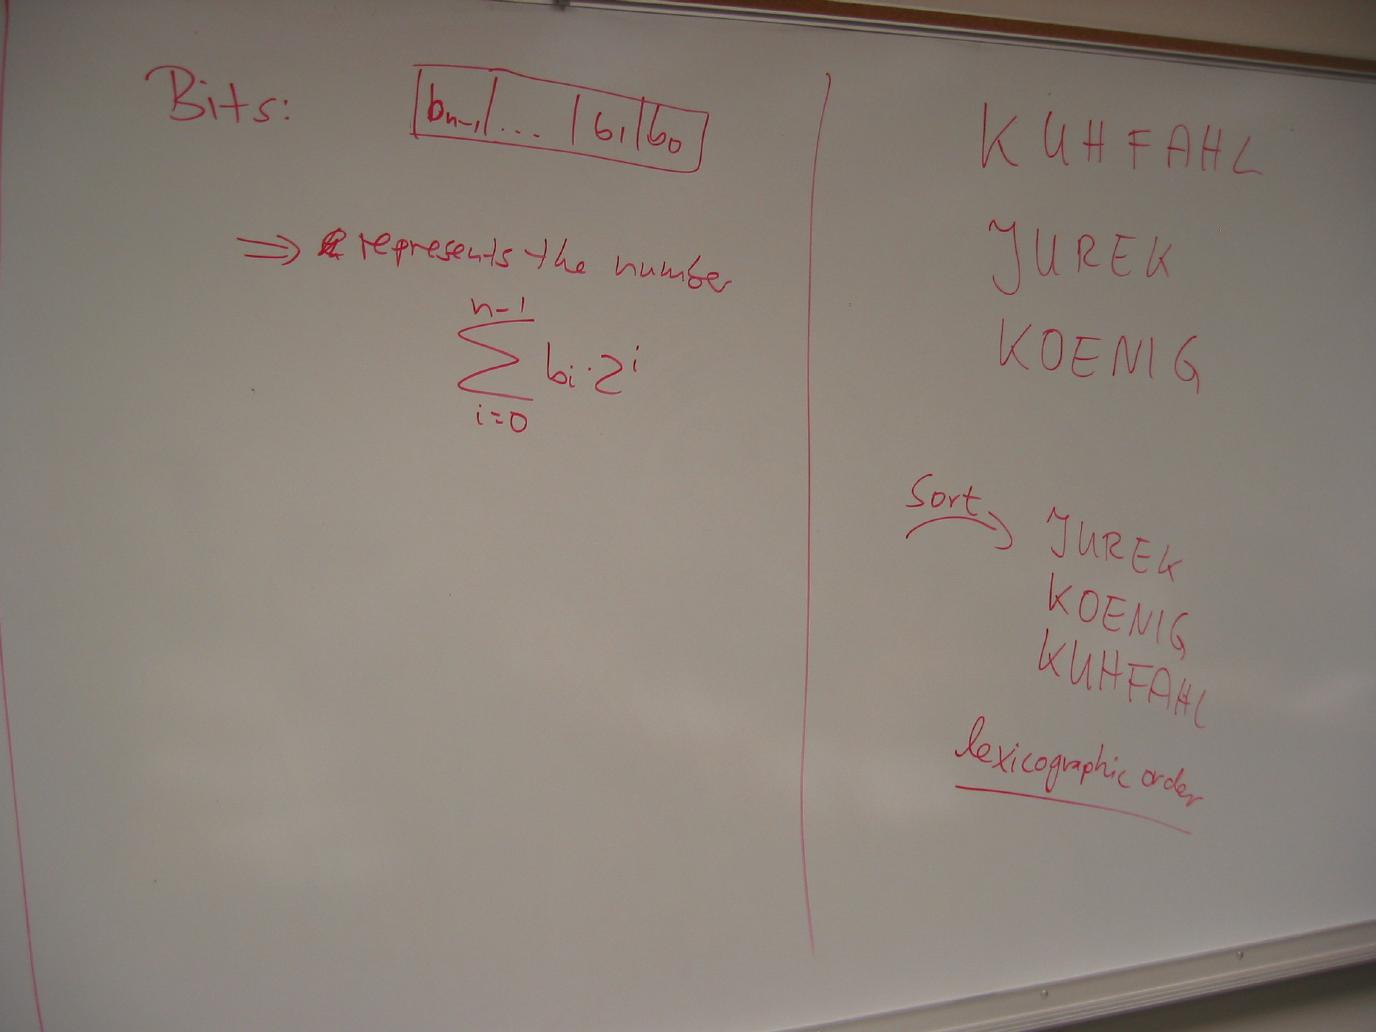 Bits: b_{n-1} | ... | b_1 | b_0
⇒ represents the number
n-1
∑ b_i · 2^i
i=0
KUHFAHL
JUREK
KOENIG
Sort
JUREK
KOENIG
KUHFAHL
lexicographic order